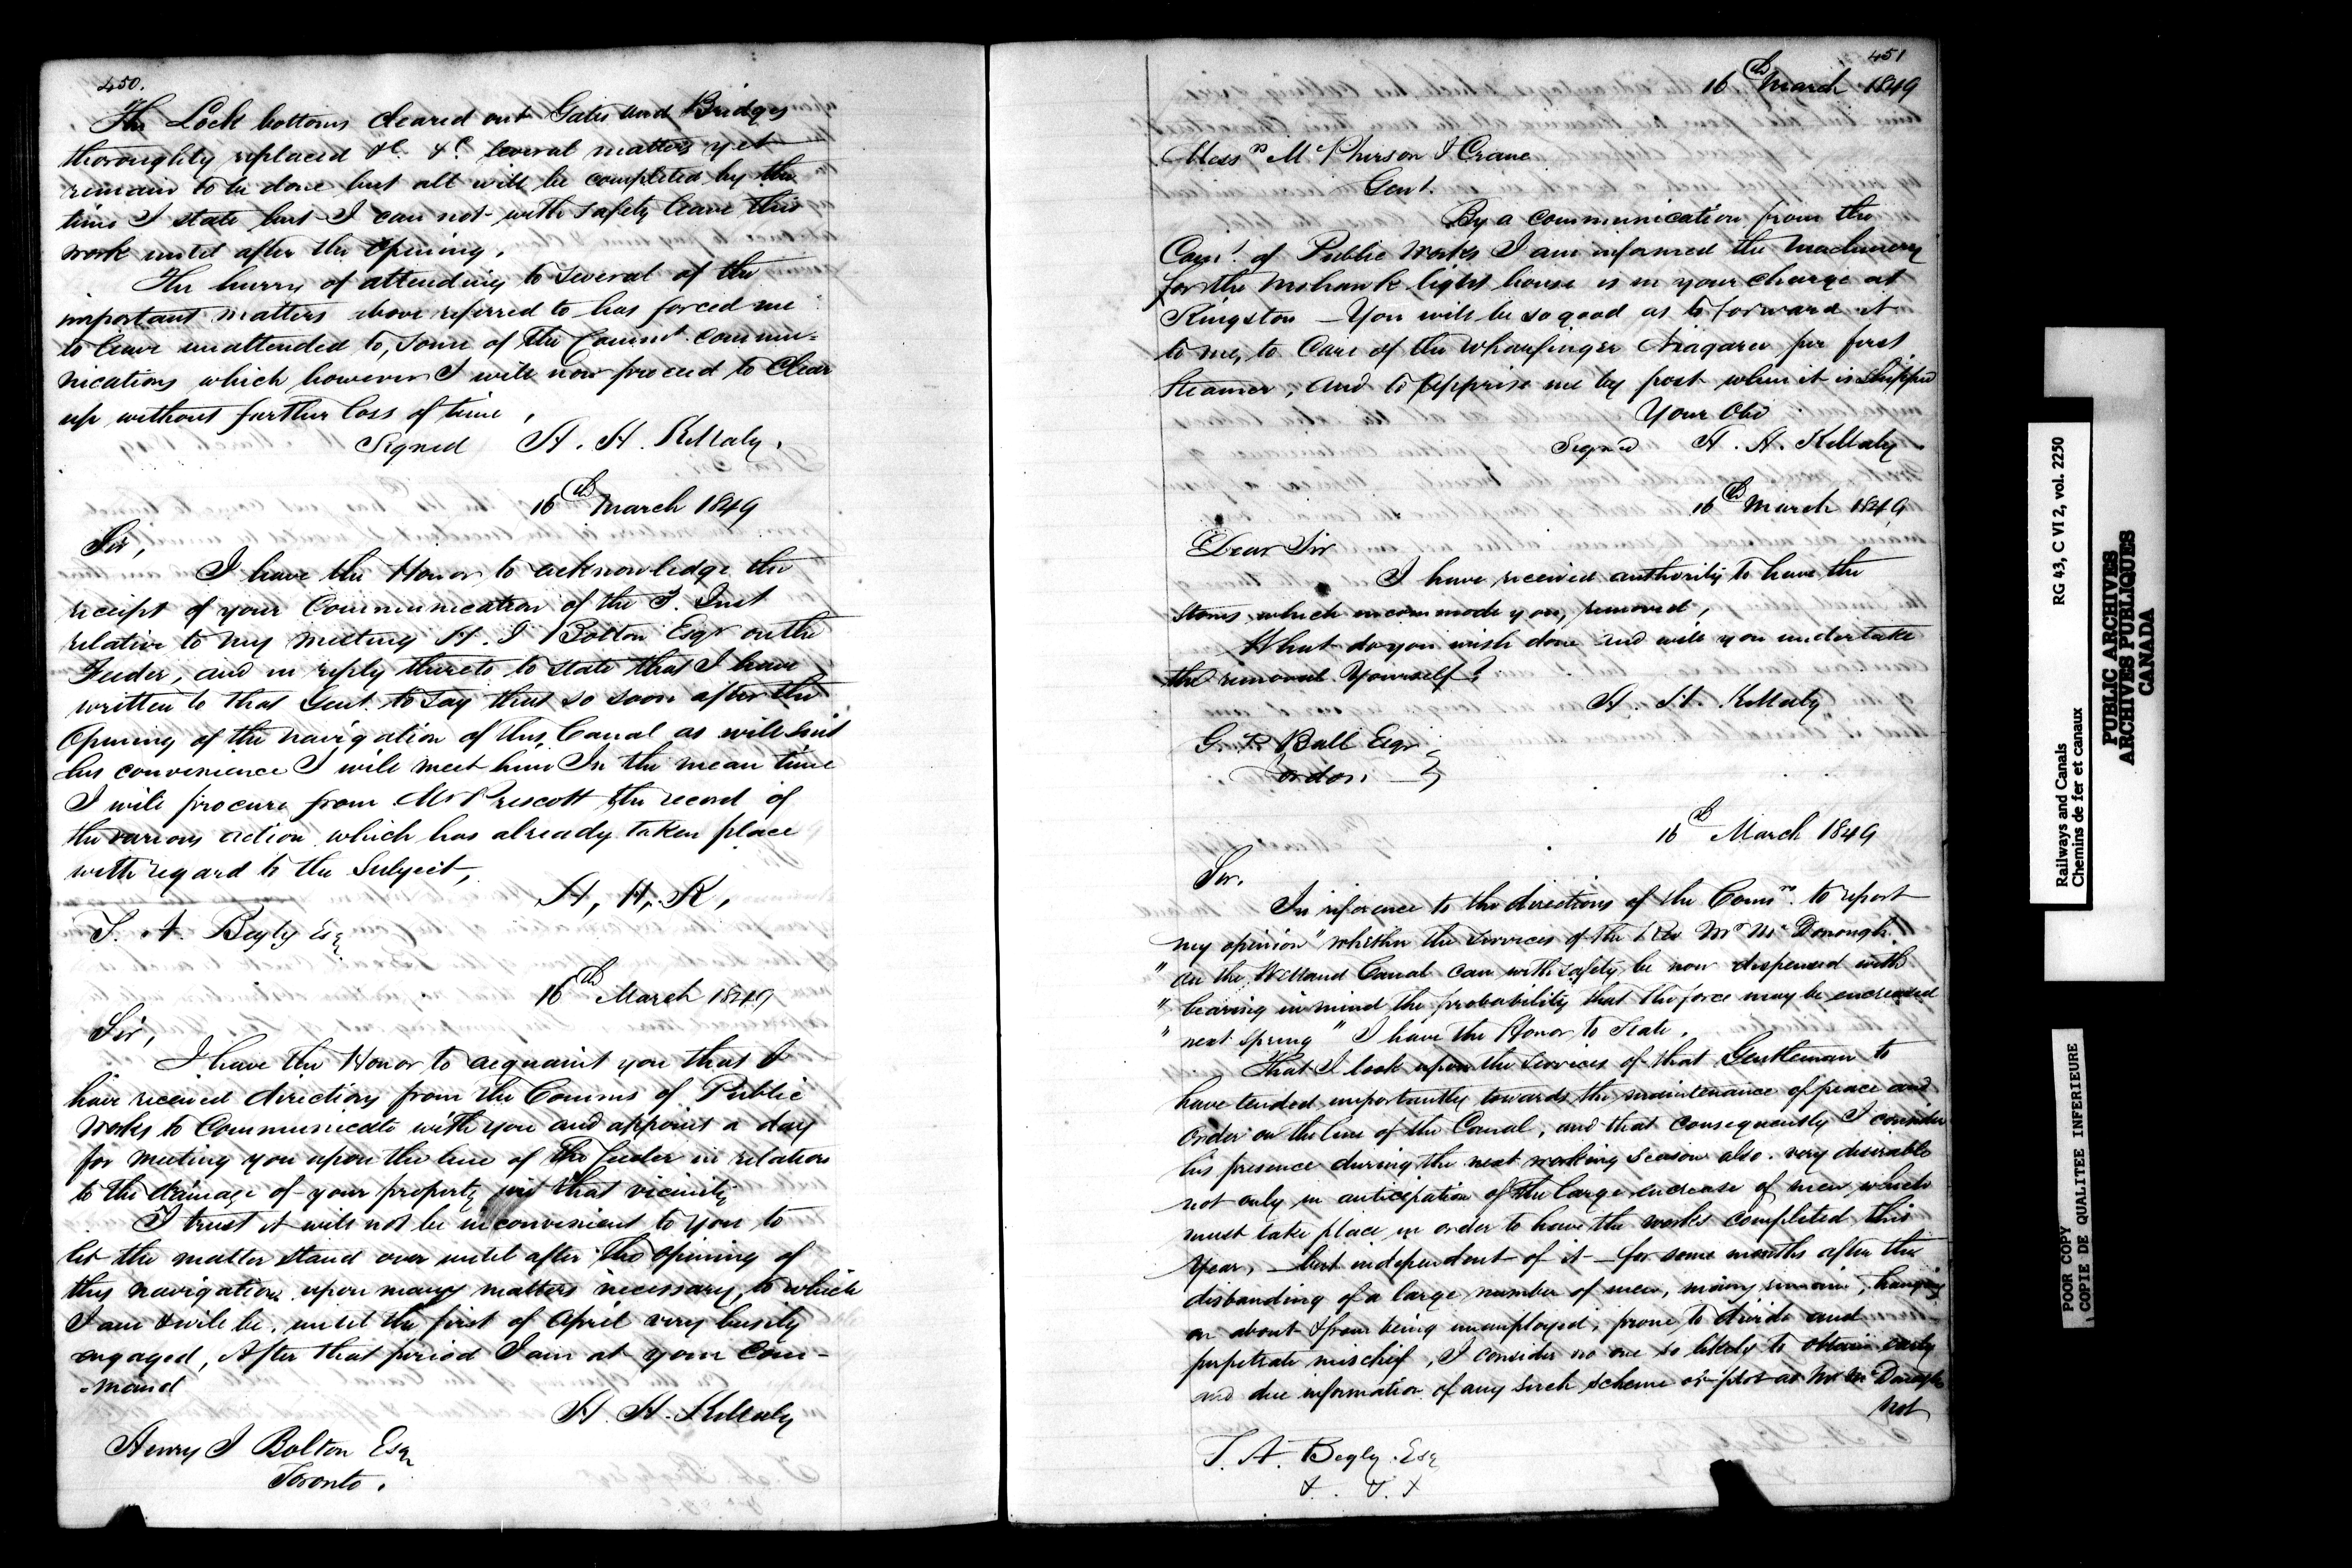 450.
The Lock bottoms cleared out Gates and Bridges
thoroughly replaced &c. &c. several matters yet
remain to be done but all will be completed by the
time I state but I can not with safety leave this
work until after the opening.
The hurry of attending to several of the
important matters above referred to has forced me
to leave unattended to, some of the Commrs. commu-
nications which however I will now proceed to clear
up without further loss of time.
Signed H. H. Killaly.
16th March 1849
Sir,
I have the Honor to acknowledge the
receipt of your Communication of the 7. Inst
relative to my meeting H. J Bolton Esqr on the
Feeder, and in reply thereto to state that I have
written to that Gent. to say that so soon after the
opening of the navigation of this Canal as will suit
his convenience I will meet him In the mean time
I will procure from Mr Prescott the record of
the various action which has already taken place
with regard to the Subject,
H, H, K,
T. A. Begly Esq
16th March 1849
Sir,
I have the Honor to acquaint you that I
have received directions from the Comms of Public
Works to Communicate with you and appoint a day
for meeting you upon the line of the feeder in relation
to the drainage of your property in that vicinity
I trust it will not be inconvenient to you to
let the matter stand over until after the opening of
this navigation upon many matters necessary to which
I am & will be, until the first of April very busily
engaged, After that period I am at your Com-
-mand
H. H. Killaly
Henry J Bolton Esq
Toronto.
451
16th March 1849
Messrs McPherson & Crane
Gent.
By a communication from the
Comrs. of Public Works I am informed the Machinery
for the Mohawk light house is in your charge at
Kingston - You will be so good as to forward it
to me, to Care of the Wharfinger Niagara per first
Steamer, and to apprise me by post when it is shipped
Your Obt
Signd H. H. Killaly
16th March 1849
Dear Sir
I have received authority to have the
stones which incommode you, removed,
What do you wish done and will you undertake
the removal Yourself?
H. H. Killaly
G. P. Ball Esqr
16th March 1849
Sir.
In reference to the directions of the Comrs. to report
my opinion "whether the services of the Rev Mr McDonough
" on the Welland Canal can with safety be now dispensed with
" bearing in mind the probability that the force may be encreased
" next Spring " I have the Honor to State.
That I look upon the services of that Gentleman to
have tended importantly towards the maintenance of peace and
order on the line of the Canal, and that consequently I consider
his presence during the next working season also very desirable
not only in anticipation of the large encrease of men which
must take place in order to have the works completed this
Year, - but independent of it - for some months after the
disbanding of a large number of men, many remain, hanging
on about & from being unemployed, prone to divide and
perpetrate mischief, I consider no one so likely to obtain early
and due information of any such scheme or plot as Mr McDonough
not
T. A. Begly. Esq
&. &. &
Railways and Canals
Chemins de fer et canaux
RG 43, C VI 2, vol. 2250
PUBLIC ARCHIVES
ARCHIVES PUBLIQUES
CANADA
POOR COPY
COPIE DE QUALITEE INFERIEURE